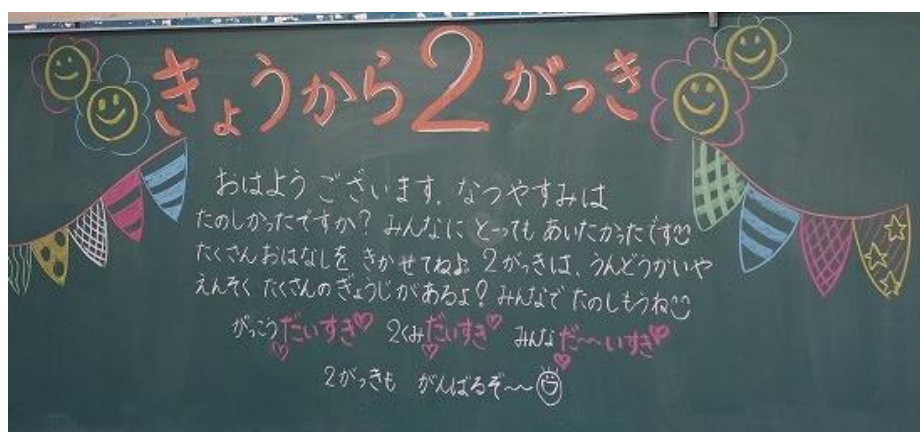 きょうから2がっき
おはようございます。なつやすみは
たのしかったですか?みんなに とっても あいたかったです
たくさんおはなしを きかせてねよ。2がっきは、うんどうかいや
えんそく たくさんのぎょうじがあるよ?みんなで たのしもうね
がっこうだいすき♡ 2くみだいすき♡ みんなだ〜〜いすき♡
2がっきも がんばるぞ〜〜